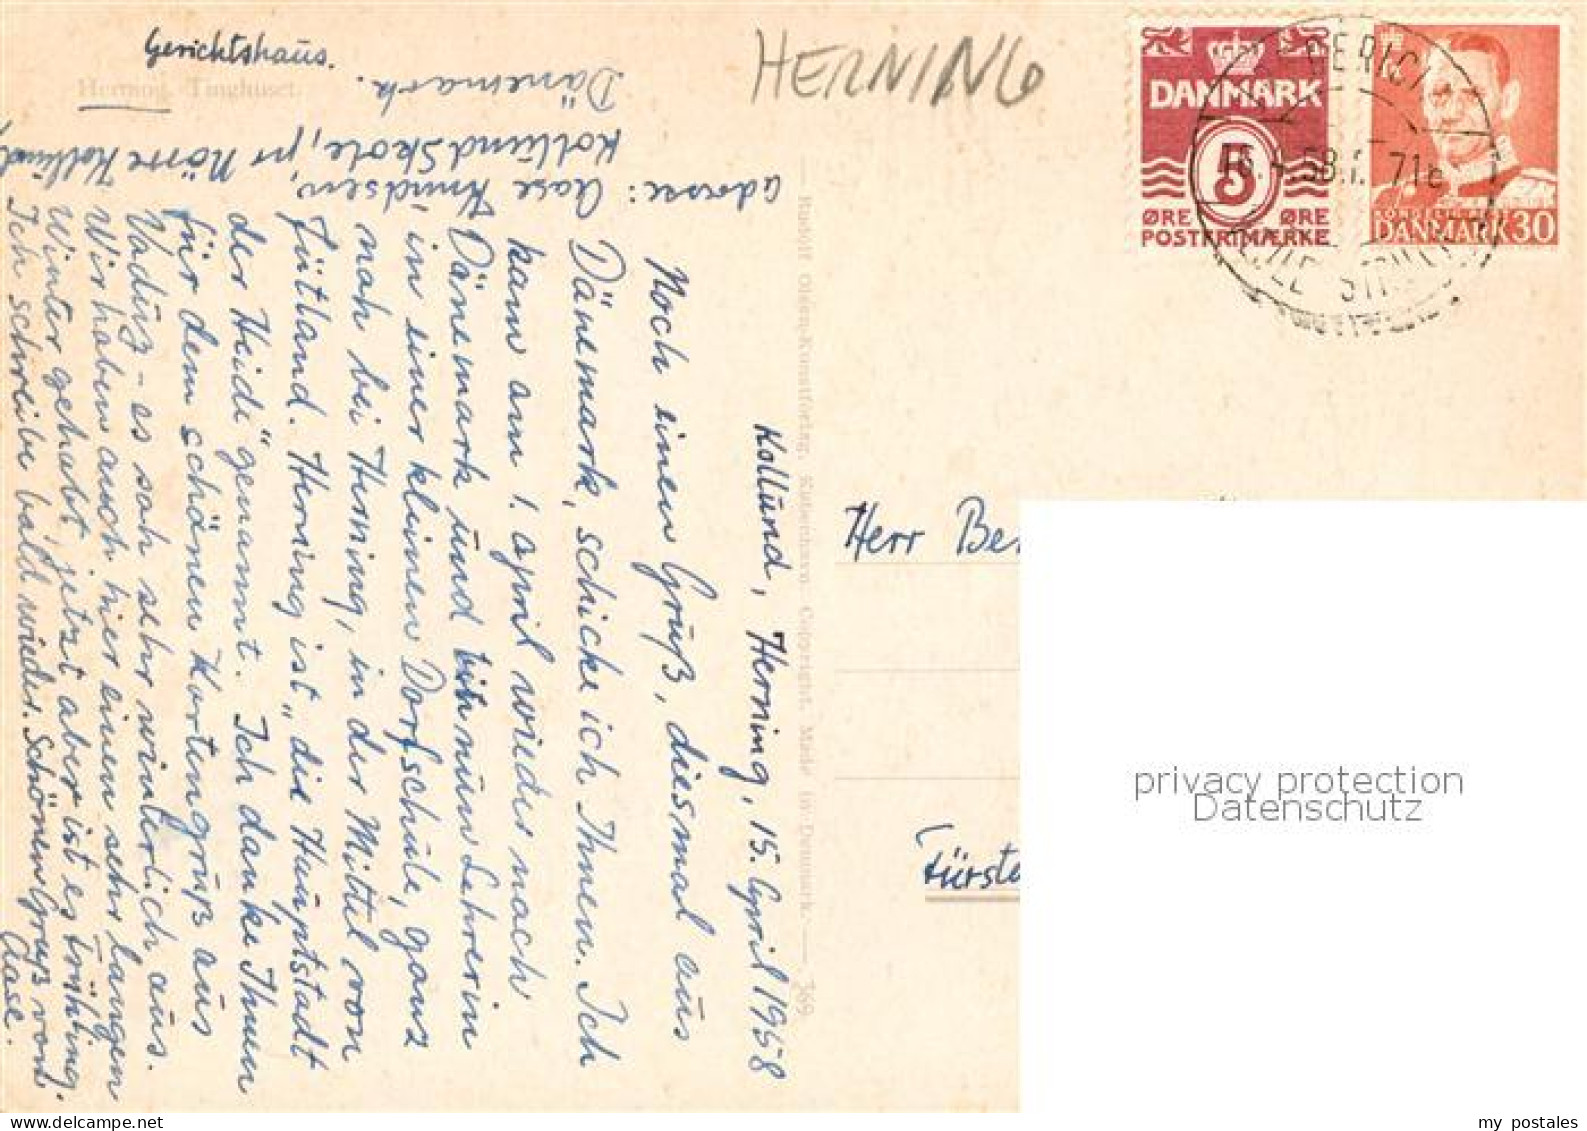 Gerichtshaus.
Herning. Tinghuset.
HERNING
Adresse: Aase Knudsen,
Kollund Skole, pr Nörre Kollund,
Dänemark.
Kollund, Herning, 15. April 1958
Noch einen Gruß, diesmal aus
Dänemark, schicke ich Ihnen. Ich
kam am 1. April wieder nach
Dänemark und bin nun Lehrerin
in einer kleinen Dorfschule, ganz
nah bei Herning, in der Mittel von
Jütland. Herning ist „die Hauptstadt
der Heide" genannt. Ich danke Ihnen
für dem schönen Kartengruß aus
Vaduz - es sah sehr winterlich aus.
Wir haben auch hier einen sehr langen
Winter gehabt, jetzt aber ist es Frühling.
Ich schreibe bald wieder. Schönen Gruß von
Aase.
Rudolf Olsens Kunstforlag, København. Copyright. Made in Denmark. 369
DANMARK
5
ØRE ØRE
POSTFRIMÆRKE
DANMARK 30
58.
Herr Be
Fürste
privacy protection
Datenschutz
my postales